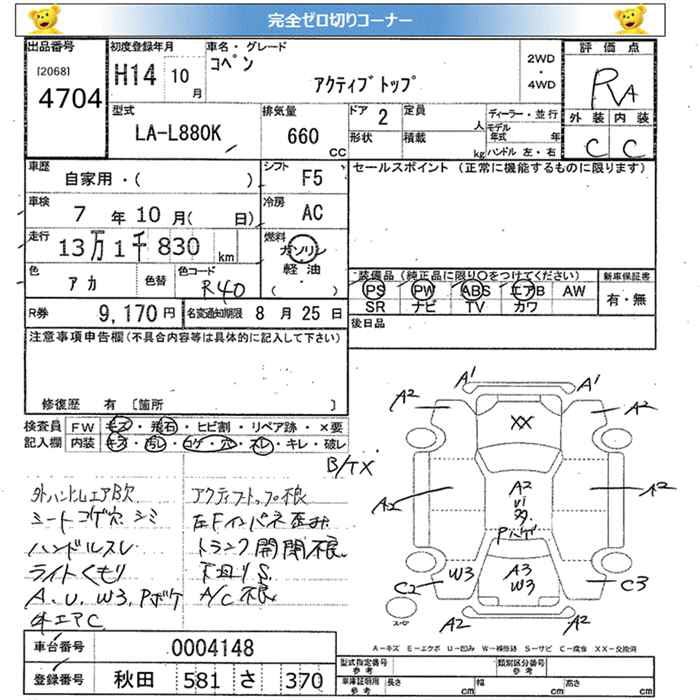 完全ゼロ切りコーナー
出品番号
[2068]
4704
初度登録年月
H14 10月
車名・グレード
コペン
アクティブトップ
2WD
・
4WD
評価点
RA
外装 内装
C C
型式
LA-L880K
排気量
660 CC
ドア 2
定員 人
形状
積載 kg
ディーラー・並行
モデル年式 年
ハンドル 左・右
車歴
自家用・( )
シフト
F5
セールスポイント (正常に機能するものに限ります)
車検
7年10月( 日)
冷房
AC
走行
13万1千830 km
燃料
ガソリン
軽油
( ・ )
色
アカ
色替
色コード
R40
装備品(純正品に限り○をつけてください)
PS PW ABS エアB AW
SR ナビ TV カワ
新車保証書
有・無
R券
9,170円
名変通知期限
8月25日
後日品
注意事項申告欄(不具合内容等は具体的に記入して下さい)
修復歴 有 [箇所 ]
検査員
記入欄
FW キズ・飛石・ヒビ割・リペア跡・×要
内装 キズ・汚レ・コゲ・穴・スレ・キレ・破レ
B/TX
外ハンドルエアB欠
シートコゲ穴シミ
ハンドルスレ
ライトくもり
A、U、W3、Pボケ
アクティブトップ不良
左Fインパネ歪み
トランク開閉不良
下廻りS
A/C不良
A1 A1
A2 A2
XX
A2
A2
A2
Pハゲ
W3
A3
W3
C2 C3
A2 A2
スペア
A−キズ E−エクボ U−凹み W−補修跡 S−サビ C−腐食 XX−交換済
車台番号
0004148
登録番号
秋田 581 さ 370
型式指定番号
参考
類別区分番号
参考
車庫証明用
参考
長さ cm
幅 cm
高さ cm